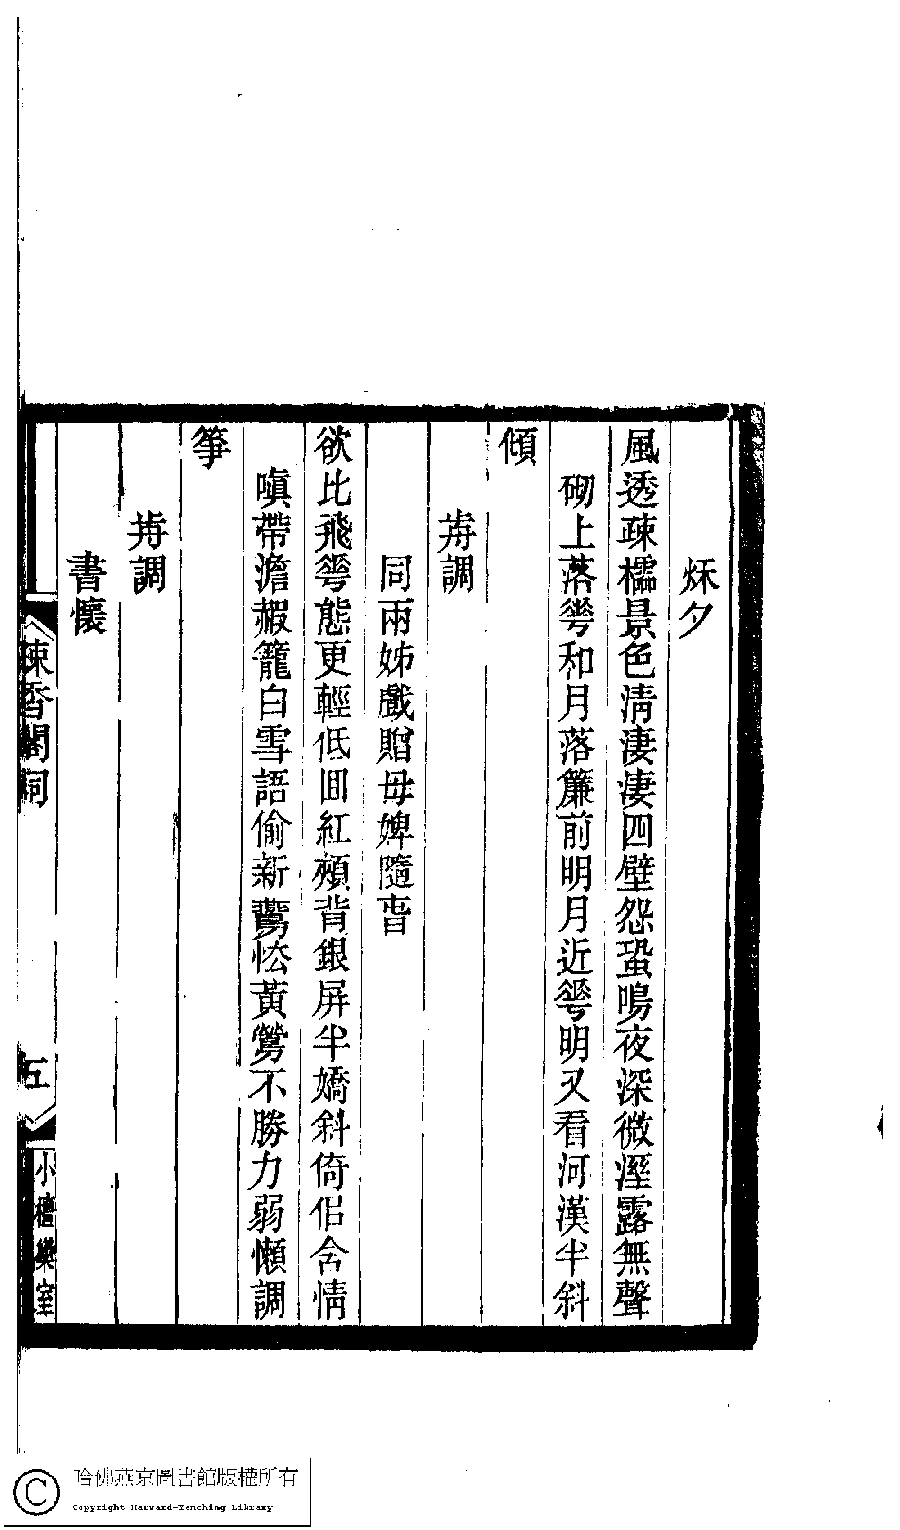 秌夕
風透疎櫺景色清淒淒四壁怨蛩鳴夜深微溼露無聲
砌上落蕐和月落簾前明月近蕐明又看河漢半斜
傾
歬調
同兩姊戲贈毋婢隨旾
欲比飛蕐態更輕低囬紅頰背銀屏半嬌斜倚佀含情
嗔帶澹霞籠白雪語偷新鶯怯黃鶯不勝力弱懶調
筝
歬調
書懷
疎香閣詞
五
小檀欒室
哈佛燕京圖書館版權所有
Copyright Harvard-Yenching Library